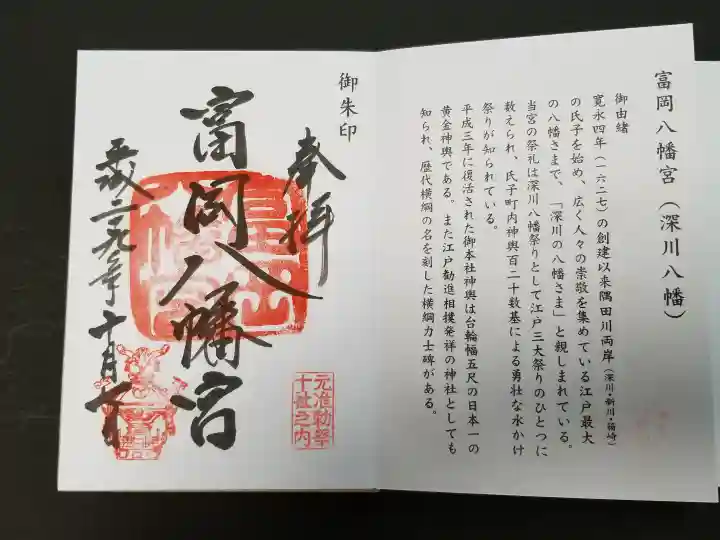 富岡八幡宮(深川八幡)
御由緒
寛永四年(一六二七)の創建以来隅田川両岸(深川・新川・箱崎)
の氏子を始め、広く人々の崇敬を集めている江戸最大
の八幡さまで、「深川の八幡さま」と親しまれている。
当宮の祭礼は深川八幡祭りとして江戸三大祭りのひとつに
数えられ、氏子町内神輿百二十数基による勇壮な水かけ
祭りが知られている。
平成三年に復活された御本社神輿は台輪幅五尺の日本一の
黄金神輿である。また江戸勧進相撲発祥の神社としても
知られ、歴代横綱の名を刻した横綱力士碑がある。
御朱印
奉拝
富岡八幡宮
平成二十九年十月七日
元准勅祭
十社之内